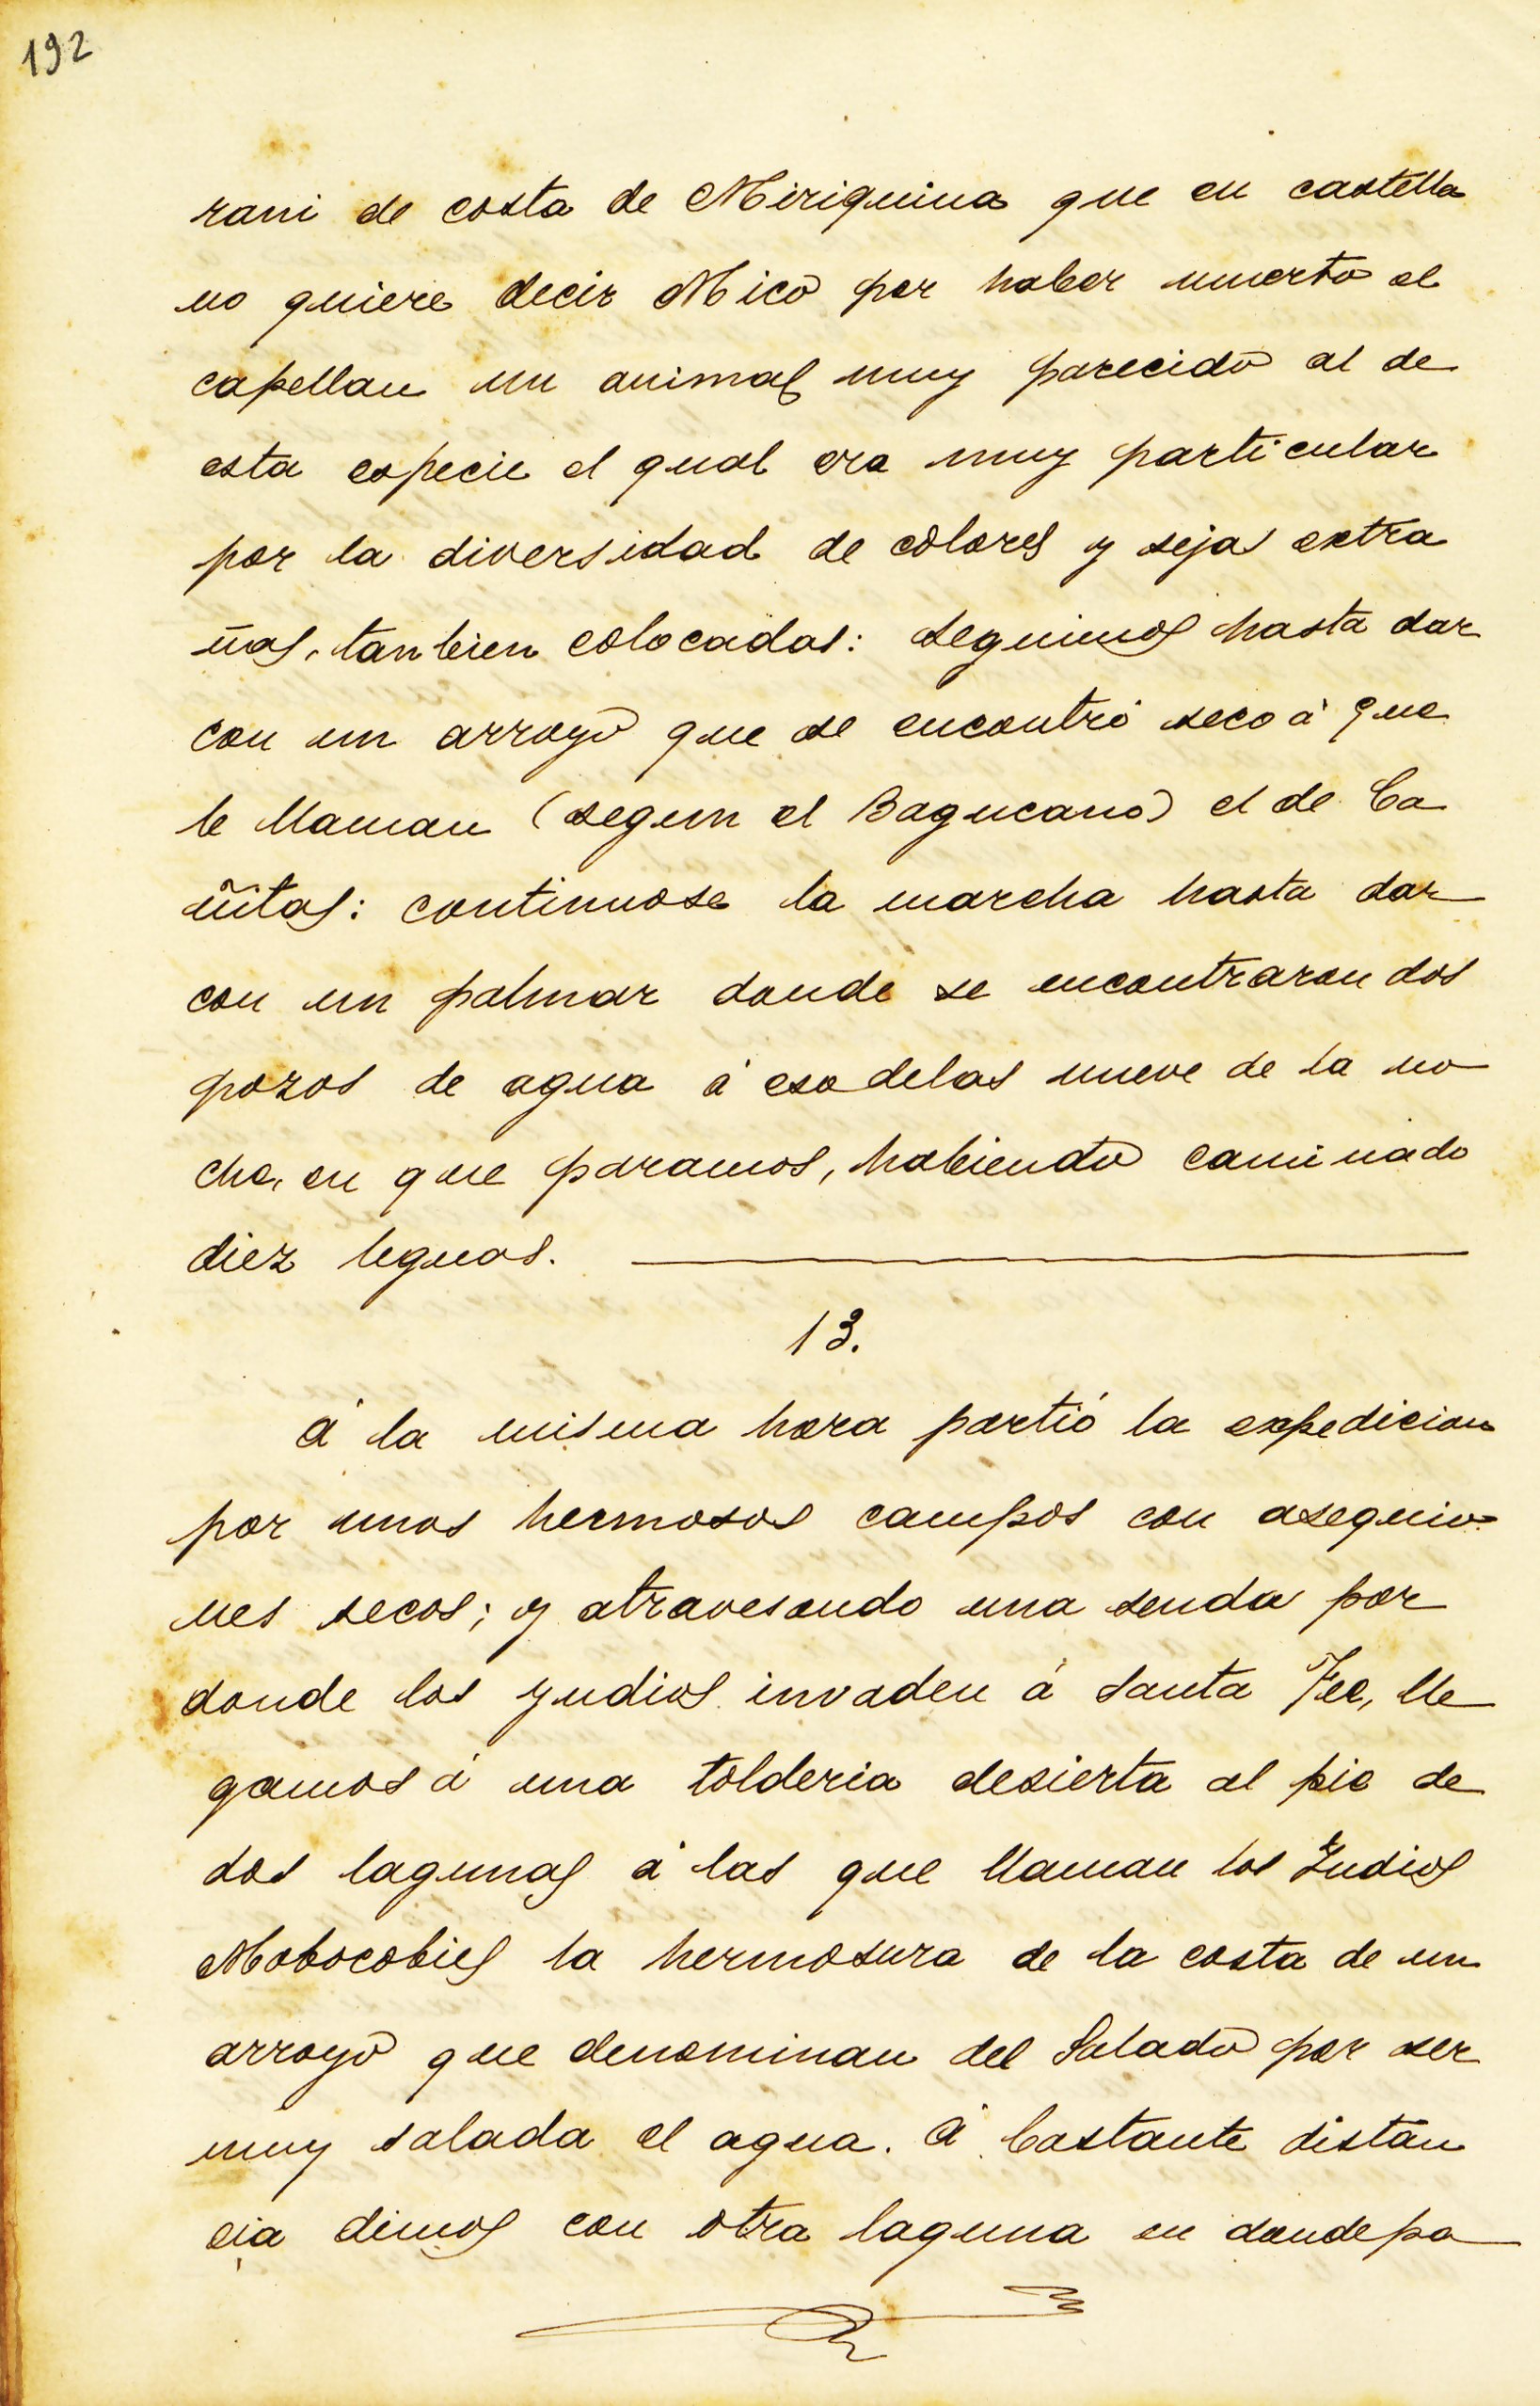 192
rani de costa de Miriquina que en castella
no quiere decir Mico por haber muerto el
capellan un animal muy parecido al de
esta especie el qual era muy particular
por la diversidad de colores y sejas extra
ñas, tanbien colocadas: seguimos hasta dar
con un arroyo que se encontró seco á que
le llaman (segun el Baqueano) el de Ca
ñitas: continuose la marcha hasta dar
con un palmar donde se encontraron dos
pozos de agua á eso delas nueve de la no
che, en que paramos, habiendo caminado
diez leguas.
13.
á la misma hora partió la expedicion
por unos hermosos campos con asequio
nes secos; y atravesando una senda por
donde los yndios invaden á Santa Fee, lle
gamos á una tolderia desierta al pie de
dos lagunas á las que llaman los Indios
Mobocobies la hermosura de la costa de un
arroyo que denominan del Salado por ser
muy salada el agua. á bastante distan
cia dimos con otra laguna en donde pa